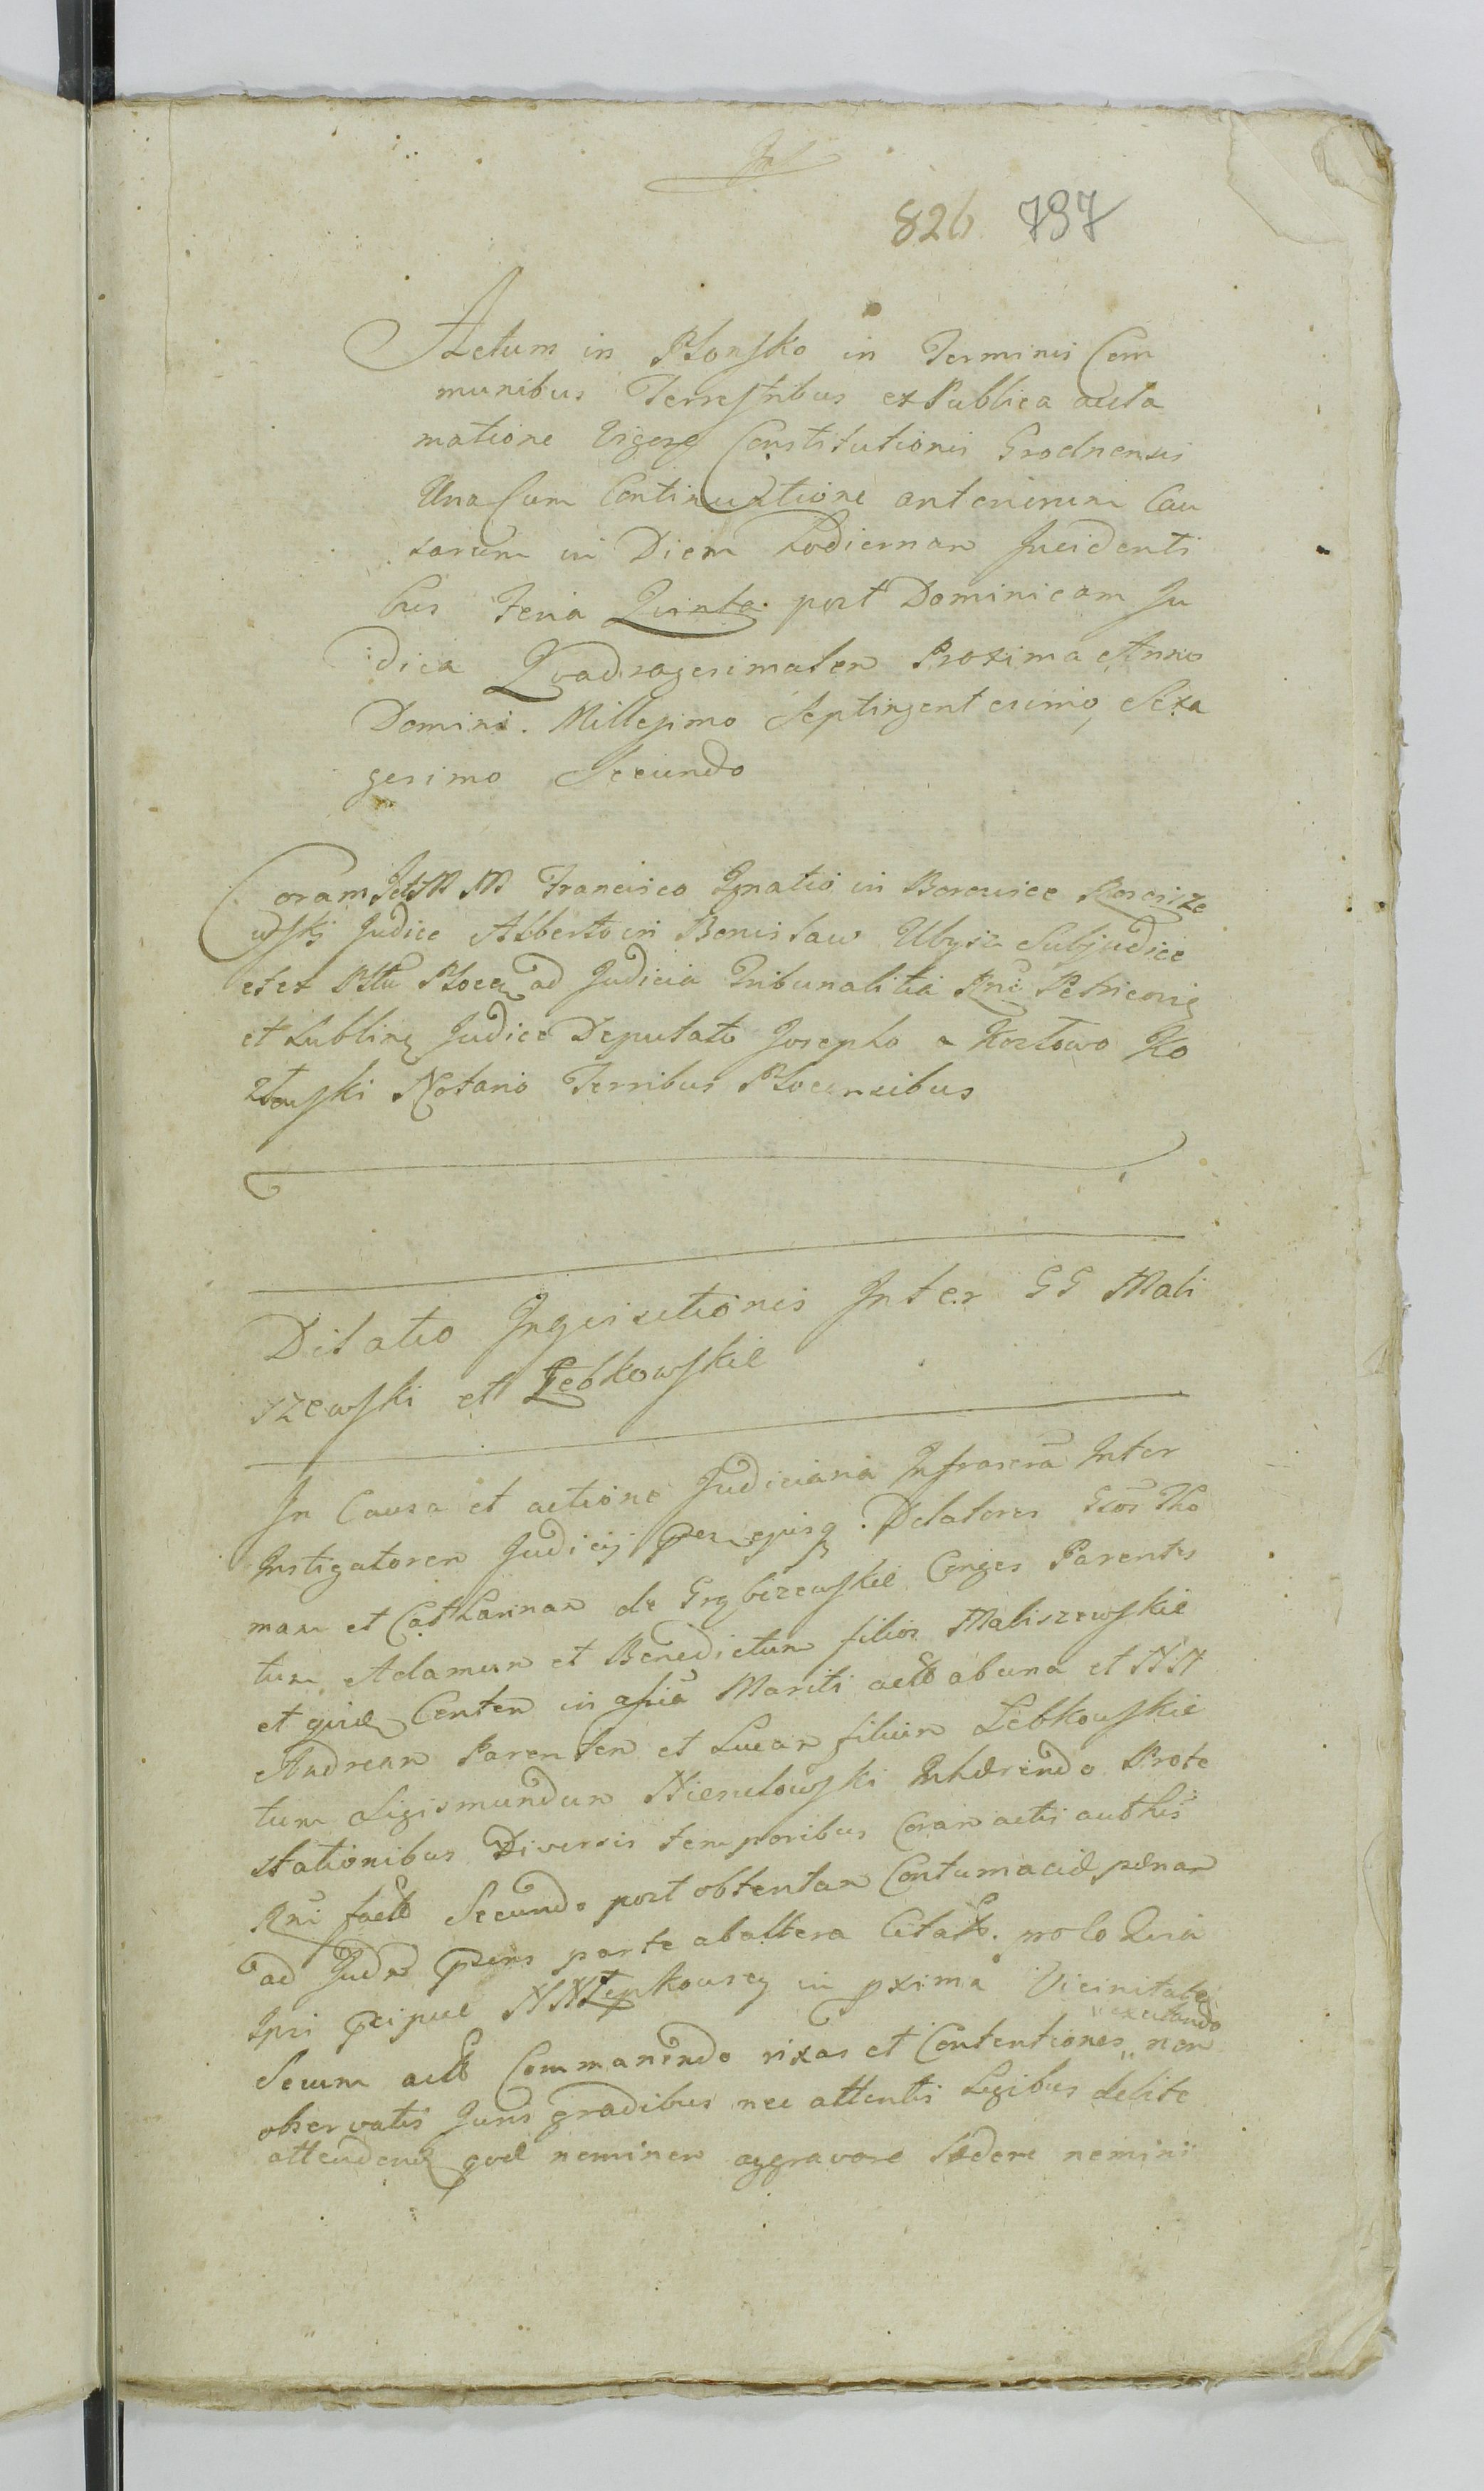 826 797
Actum in Płonsko in Terminis Com
munibus Terrestribus ex Publica accla
matione Vigore Constitutionis Grodnensis
Una Cum Continuatione anteriorum Cau
sarum in Diem hodiernam Incidenti
bus Feria Quinta post Dominicam Ju
dica Quadragesimalem Proxima Anno
Domini. Millesimo Septingentesimo Sexa
gesimo Secundo
Coram Francisco Ignatio in Borowice Roscisze
wski Judice Alberto in Benisław Ubysz Subjudice
et ex Pttu Plocen ad Judicia Tribunalitia Rni Petricovien
et Lublinen Judice Deputato Josepho a Kozłowo Ko
złowski Notario Terribus Plocensibus
Dilatio Inquisitionis Inter GG Mali
szewski et Łebkowskie
In Causa et actione Judiciaria Infrascra Inter
Instigatorem Judicij ejusq. Delatores Gsos Tho
mam et Catharinam de Grzybczewskie Conges Parentes
tum Adamum et Benedictum filios Maliszewskie
et quidem Conten in assia Mariti actt ab una et NN
Andream Parentem et Lucam filium Lebkowskie
tum Sigismundum Niesułowski Inhærendo Prote
stationibus Diversis temporibus Coram actis authis
Rni factt Secundo post obtentam Contumaciæ pænam
ad Judm pens parte ab altera Citatt. nolo Quia
Ipsi pcipue NN Łepkowscy in pxima Vicinitate
Secum actt Commanendo rixas et Contentiones "excitando" non
observatis Juris gradibus nec attentis Legibus delite
attendend quæ neminem aggravare lædere nemini